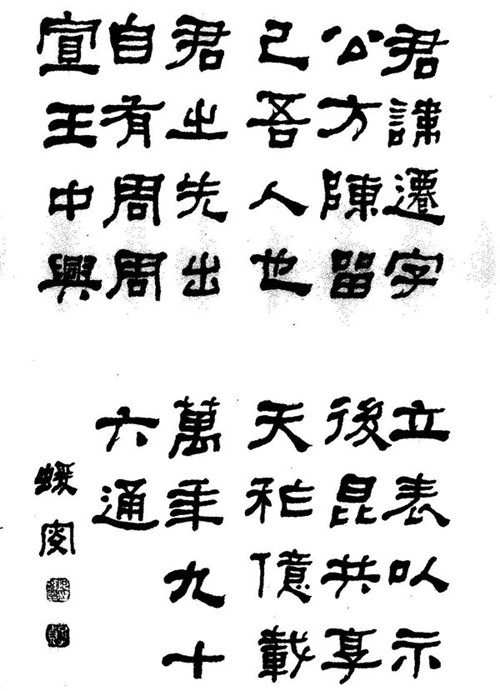 君諱遷字
公方陳留
己吾人也
君之先出
自有周周
宣王中興
立表以示
後昆共享
天祚億載
萬年九十
六通
蝯叟